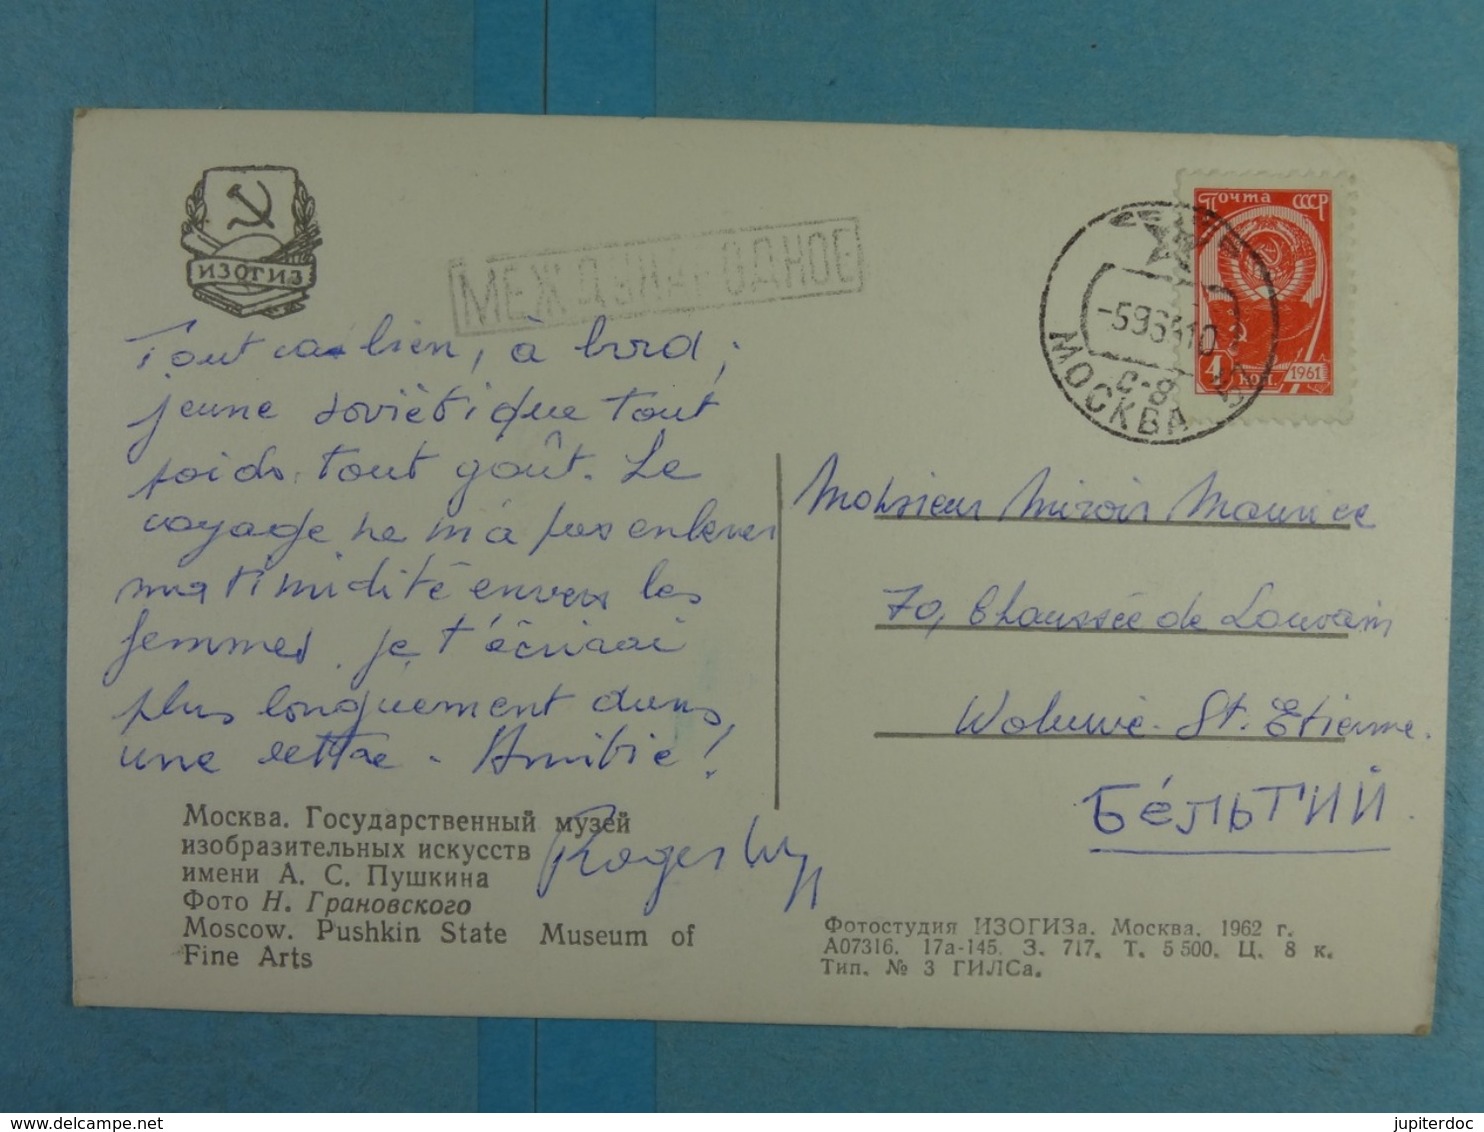 ИЗОГИЗ
МЕЖДУНАРОДНОЕ
Почта СССР
4 коп 1961
МОСКВА
Tout va bien, à bord;
jeune soviétique tout
poids, tout goût. Le
voyage ne m'a pas enlever
ma timidité envers les
femmes. je t'écrirai
plus longuement dans
une lettre - Amitié!
Roger
Monsieur Miroir Maurice
70, Chaussée de Louvain
Woluwé-St. Etienne.
БЕ́ЛЬГИЙ
Москва. Государственный музей
изобразительных искусств
имени А. С. Пушкина
Фото Н. Грановского
Moscow. Pushkin State Museum of
Fine Arts
Фотостудия ИЗОГИЗа. Москва. 1962 г.
А07316. 17а-145. З. 717. Т. 5 500. Ц. 8 к.
Тип. № 3 ГИЛСа.
jupiterdoc